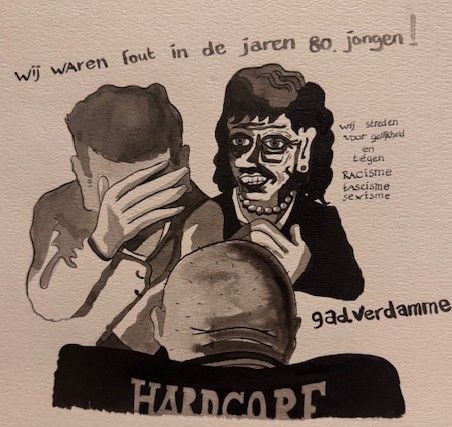 wij waren fout in de jaren 80. jongen!
wij streden
voor gelijkheid
en
tegen
RACisme
fascisme
sexisme
gadverdamme
HARDCORE